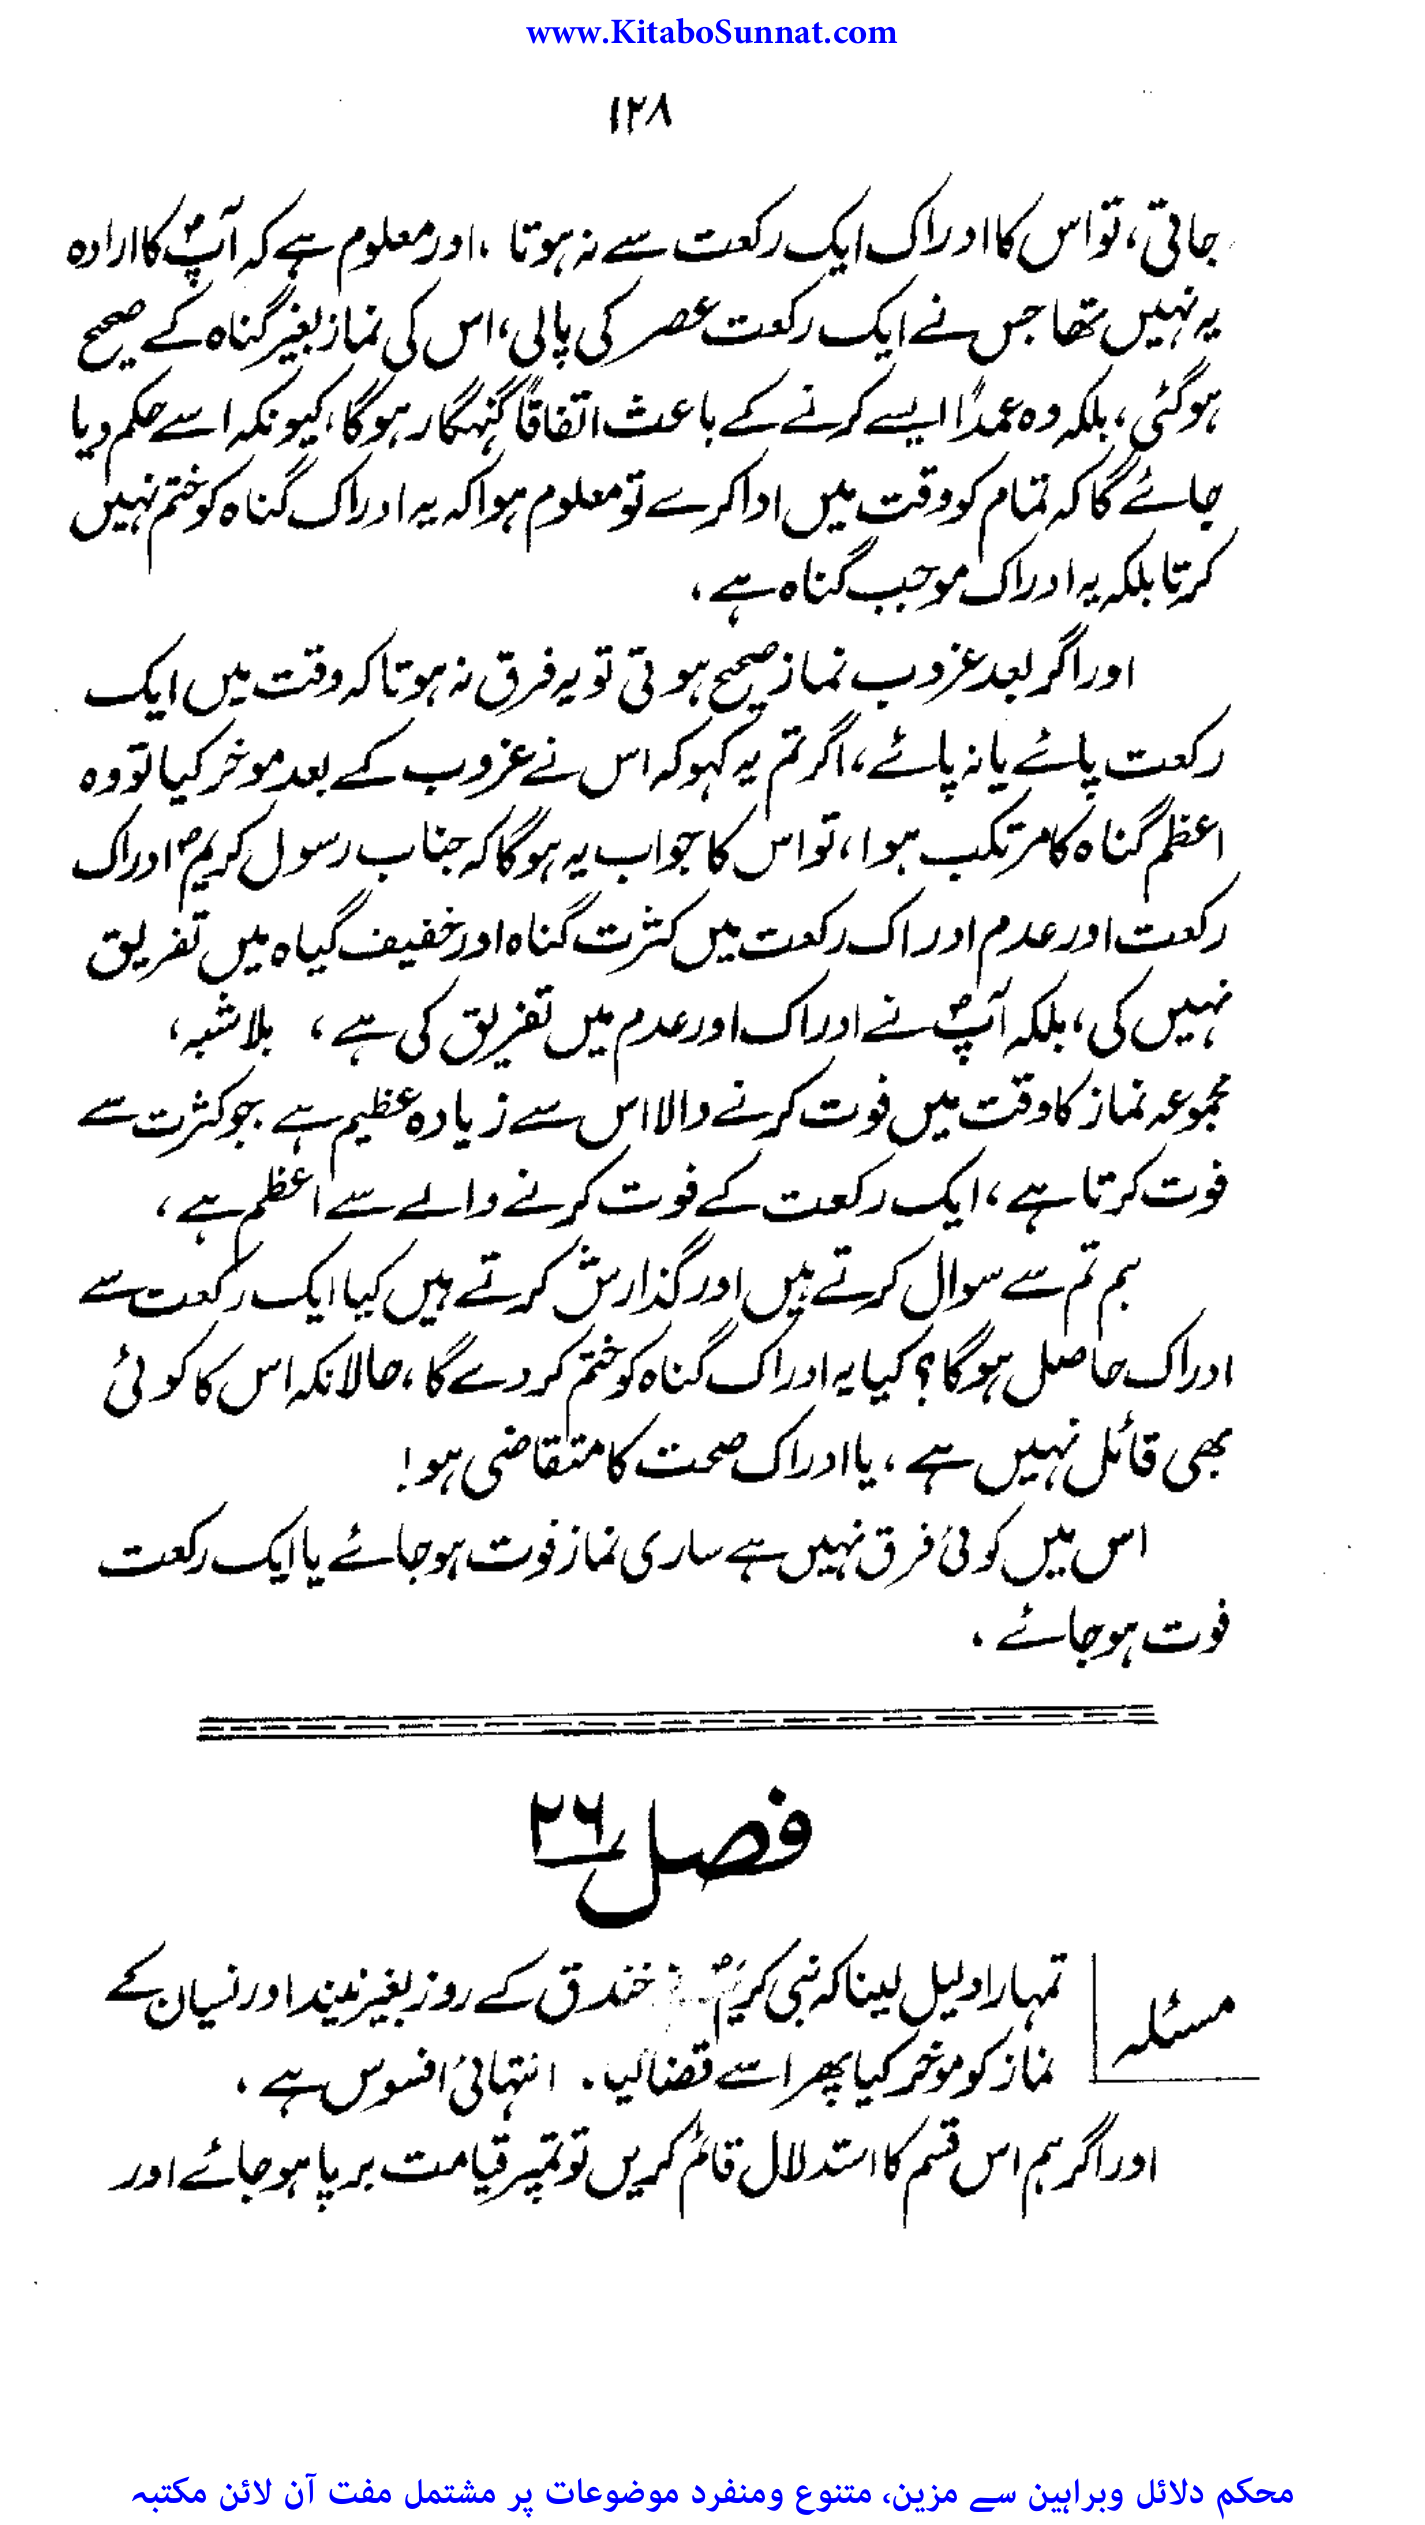 www.KitaboSunnat.com
۱۲۸
جاتی، تو اس کا ادراک ایک رکعت سے نہ ہوتا ، اور معلوم ہے کہ آپؐ کا ارادہ
یہ نہیں تھا جس نے ایک رکعت عصر کی پالی، اس کی نماز بغیر گناہ کے صحیح
ہوگئی، بلکہ وہ عمداً ایسے کرنے کے باعث اتفاقاً گنہگار ہوگا، کیونکہ اسے حکم دیا
جائے گا کہ تمام کو وقت میں ادا کرے تو معلوم ہوا کہ یہ ادراک گناہ کو ختم نہیں
کرتا بلکہ یہ ادراک موجب گناہ ہے ،
اور اگر بعد غروب نماز صحیح ہوتی تو یہ فرق نہ ہوتا کہ وقت میں ایک
رکعت پائے یا نہ پائے، اگر تم یہ کہو کہ اس نے غروب کے بعد موخر کیا تو وہ
اعظم گناہ کا مرتکب ہوا ، تو اس کا جواب یہ ہوگا کہ جناب رسول کریمؐ ادراک
رکعت اور عدم ادراک رکعت میں کثرت گناہ اور خفیف گیاہ میں تفریق
نہیں کی، بلکہ آپؐ نے ادراک اور عدم میں تفریق کی ہے ، بلا شبہ،
مجموعہ نماز کا وقت میں فوت کرنے والا اس سے زیادہ عظیم ہے جو کثرت سے
فوت کرتا ہے ، ایک رکعت کے فوت کرنے والے سے اعظم ہے ،
ہم تم سے سوال کرتے ہیں اور گذارش کرتے ہیں کیا ایک رکعت سے
ادراک حاصل ہوگا؟ کیا یہ ادراک گناہ کو ختم کر دے گا ، حالانکہ اس کا کوئی
بھی قائل نہیں ہے ، یا ادراک صحت کا متقاضی ہو !
اس میں کوئی فرق نہیں ہے ساری نماز فوت ہو جائے یا ایک رکعت
فوت ہو جائے ،
فصل ۲۶
مسئلہ
تمہارا دلیل لینا کہ نبی کریمؐ خندق کے روز بغیر نیند اور نسیان کے
نماز کو موخر کیا پھر اسے قضا کیا . انتہائی افسوس ہے ،
اور اگر ہم اس قسم کا استدلال قائم کریں تو تمپر قیامت برپا ہو جائے اور
محکم دلائل وبراہین سے مزین، متنوع ومنفرد موضوعات پر مشتمل مفت آن لائن مکتبہ